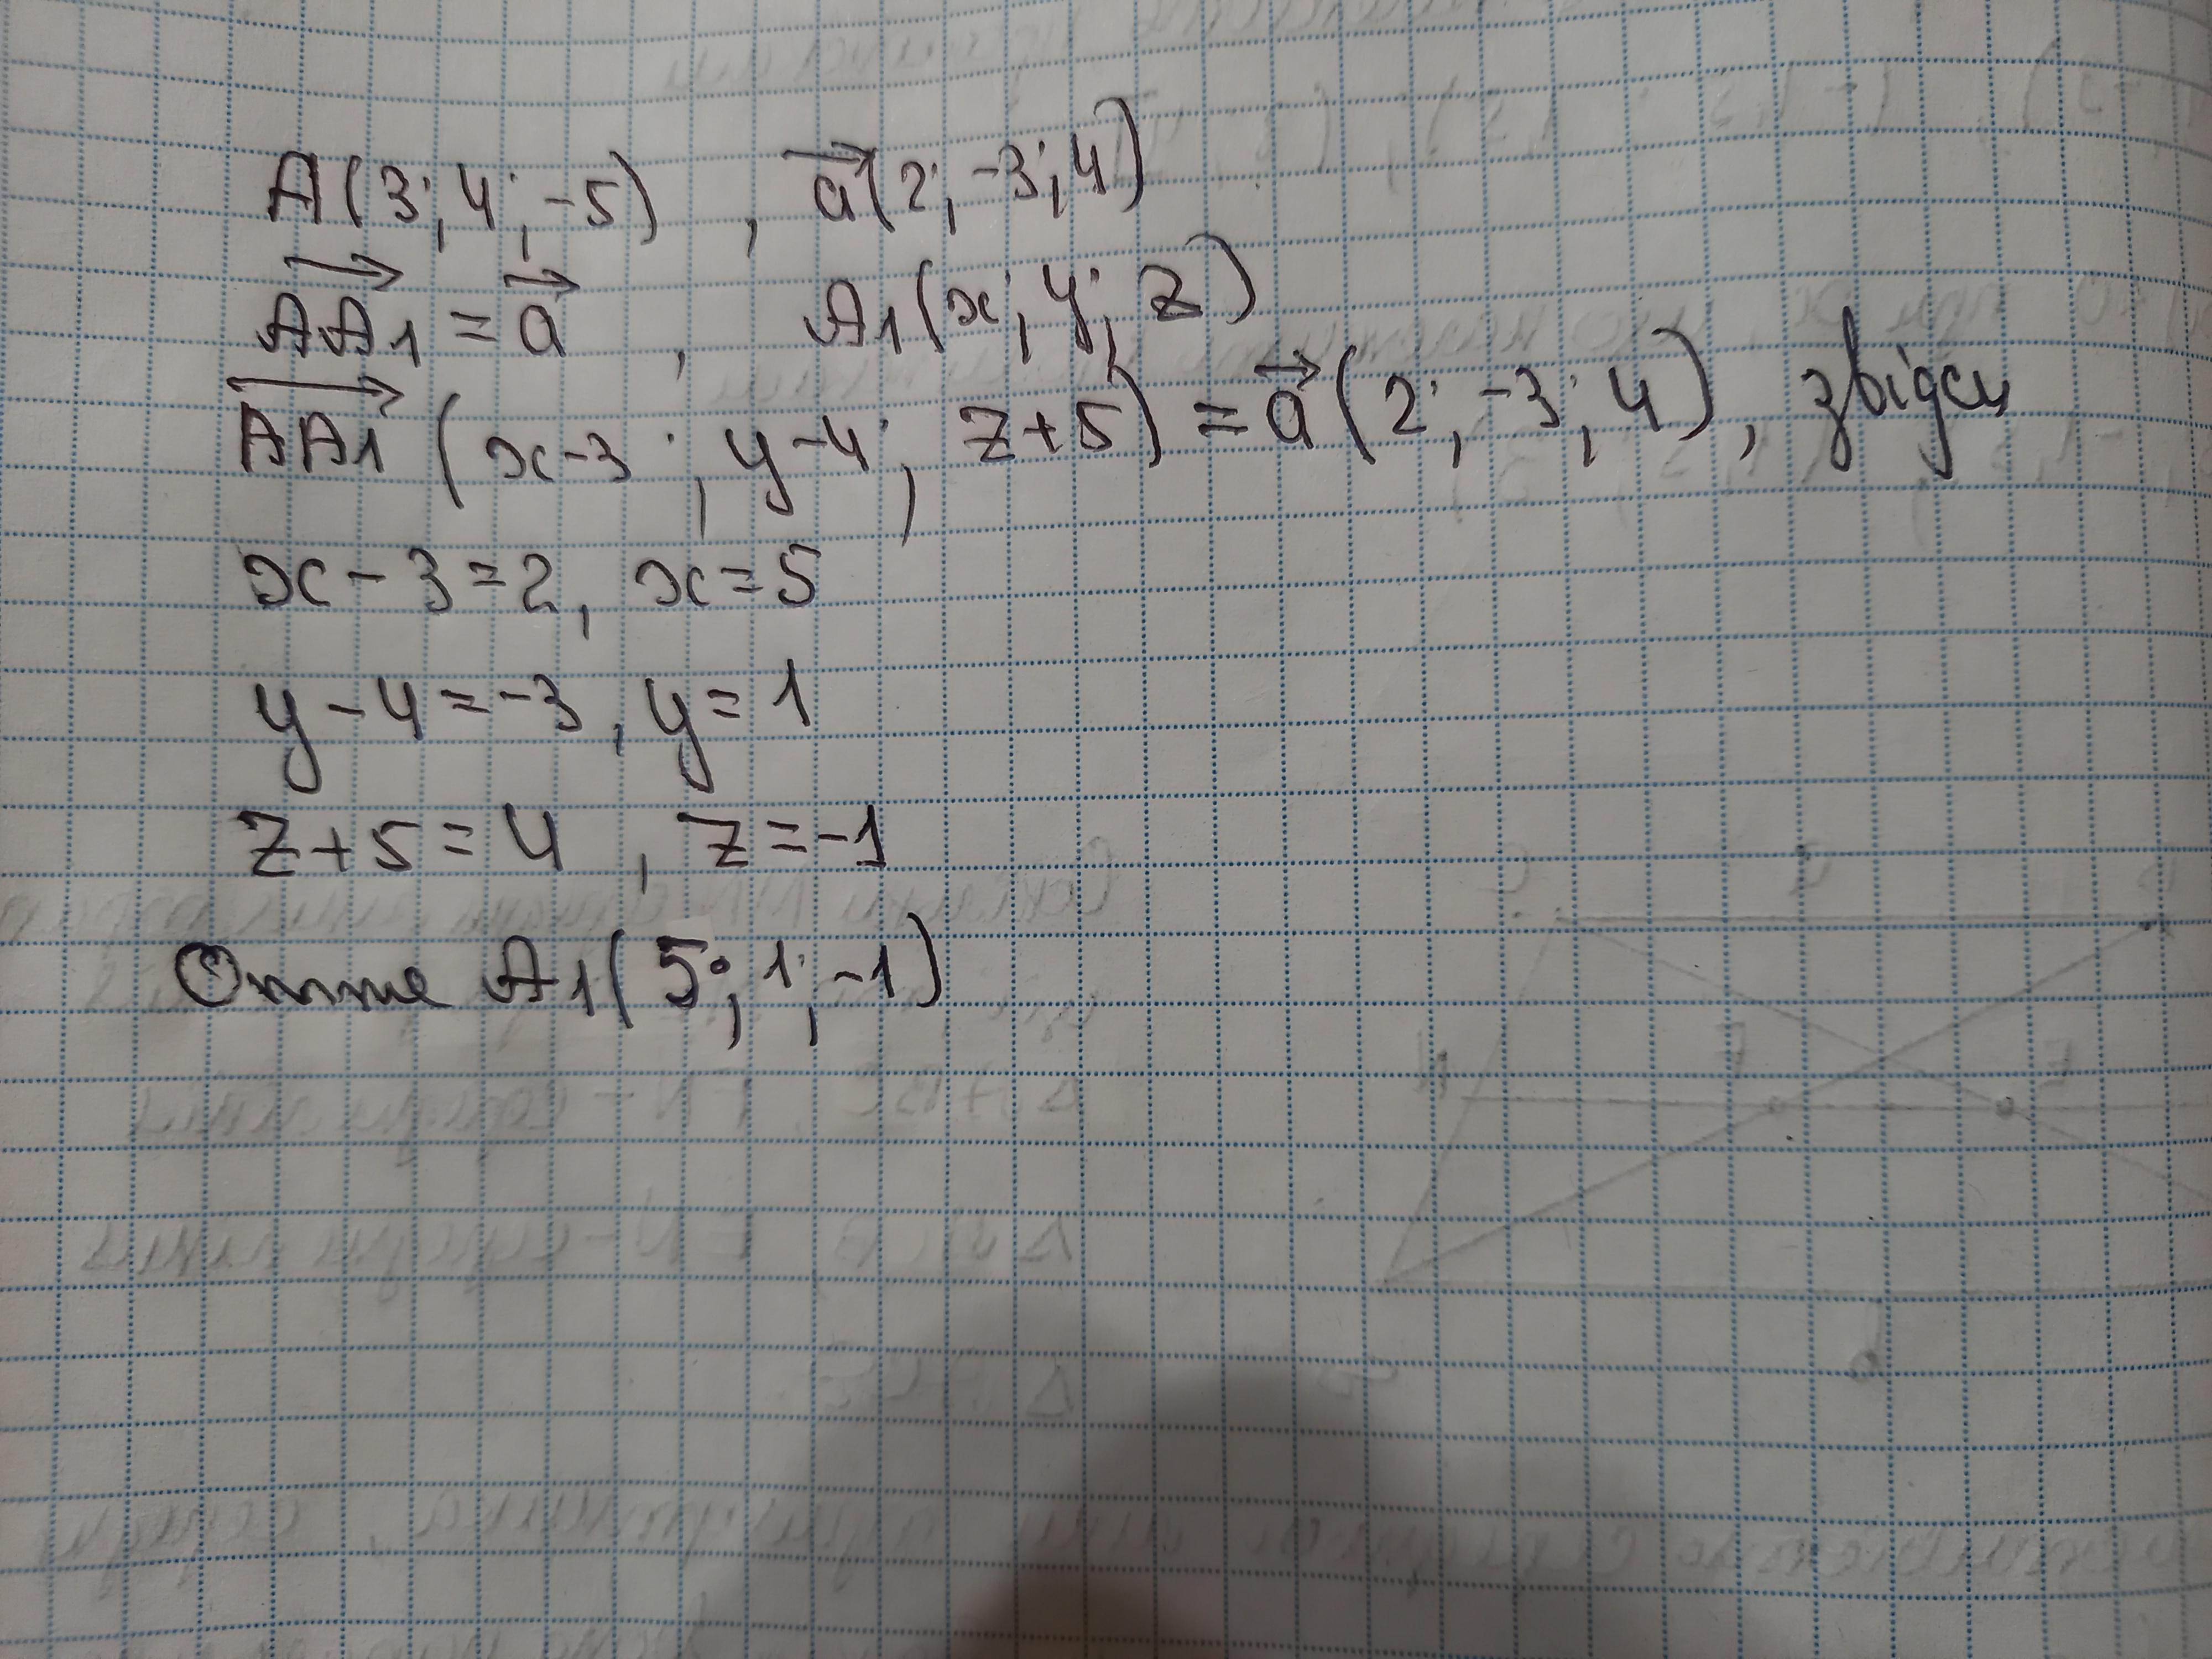 A(3; 4; -5) , a⃗(2; -3; 4)
AA₁⃗ = a⃗ , A₁(x; y; z)
AA₁⃗ (x-3; y-4; z+5) = a⃗(2; -3; 4), звідси
x-3=2, x=5
y-4=-3, y=1
z+5=4, z=-1
Отже A₁(5; 1; -1)